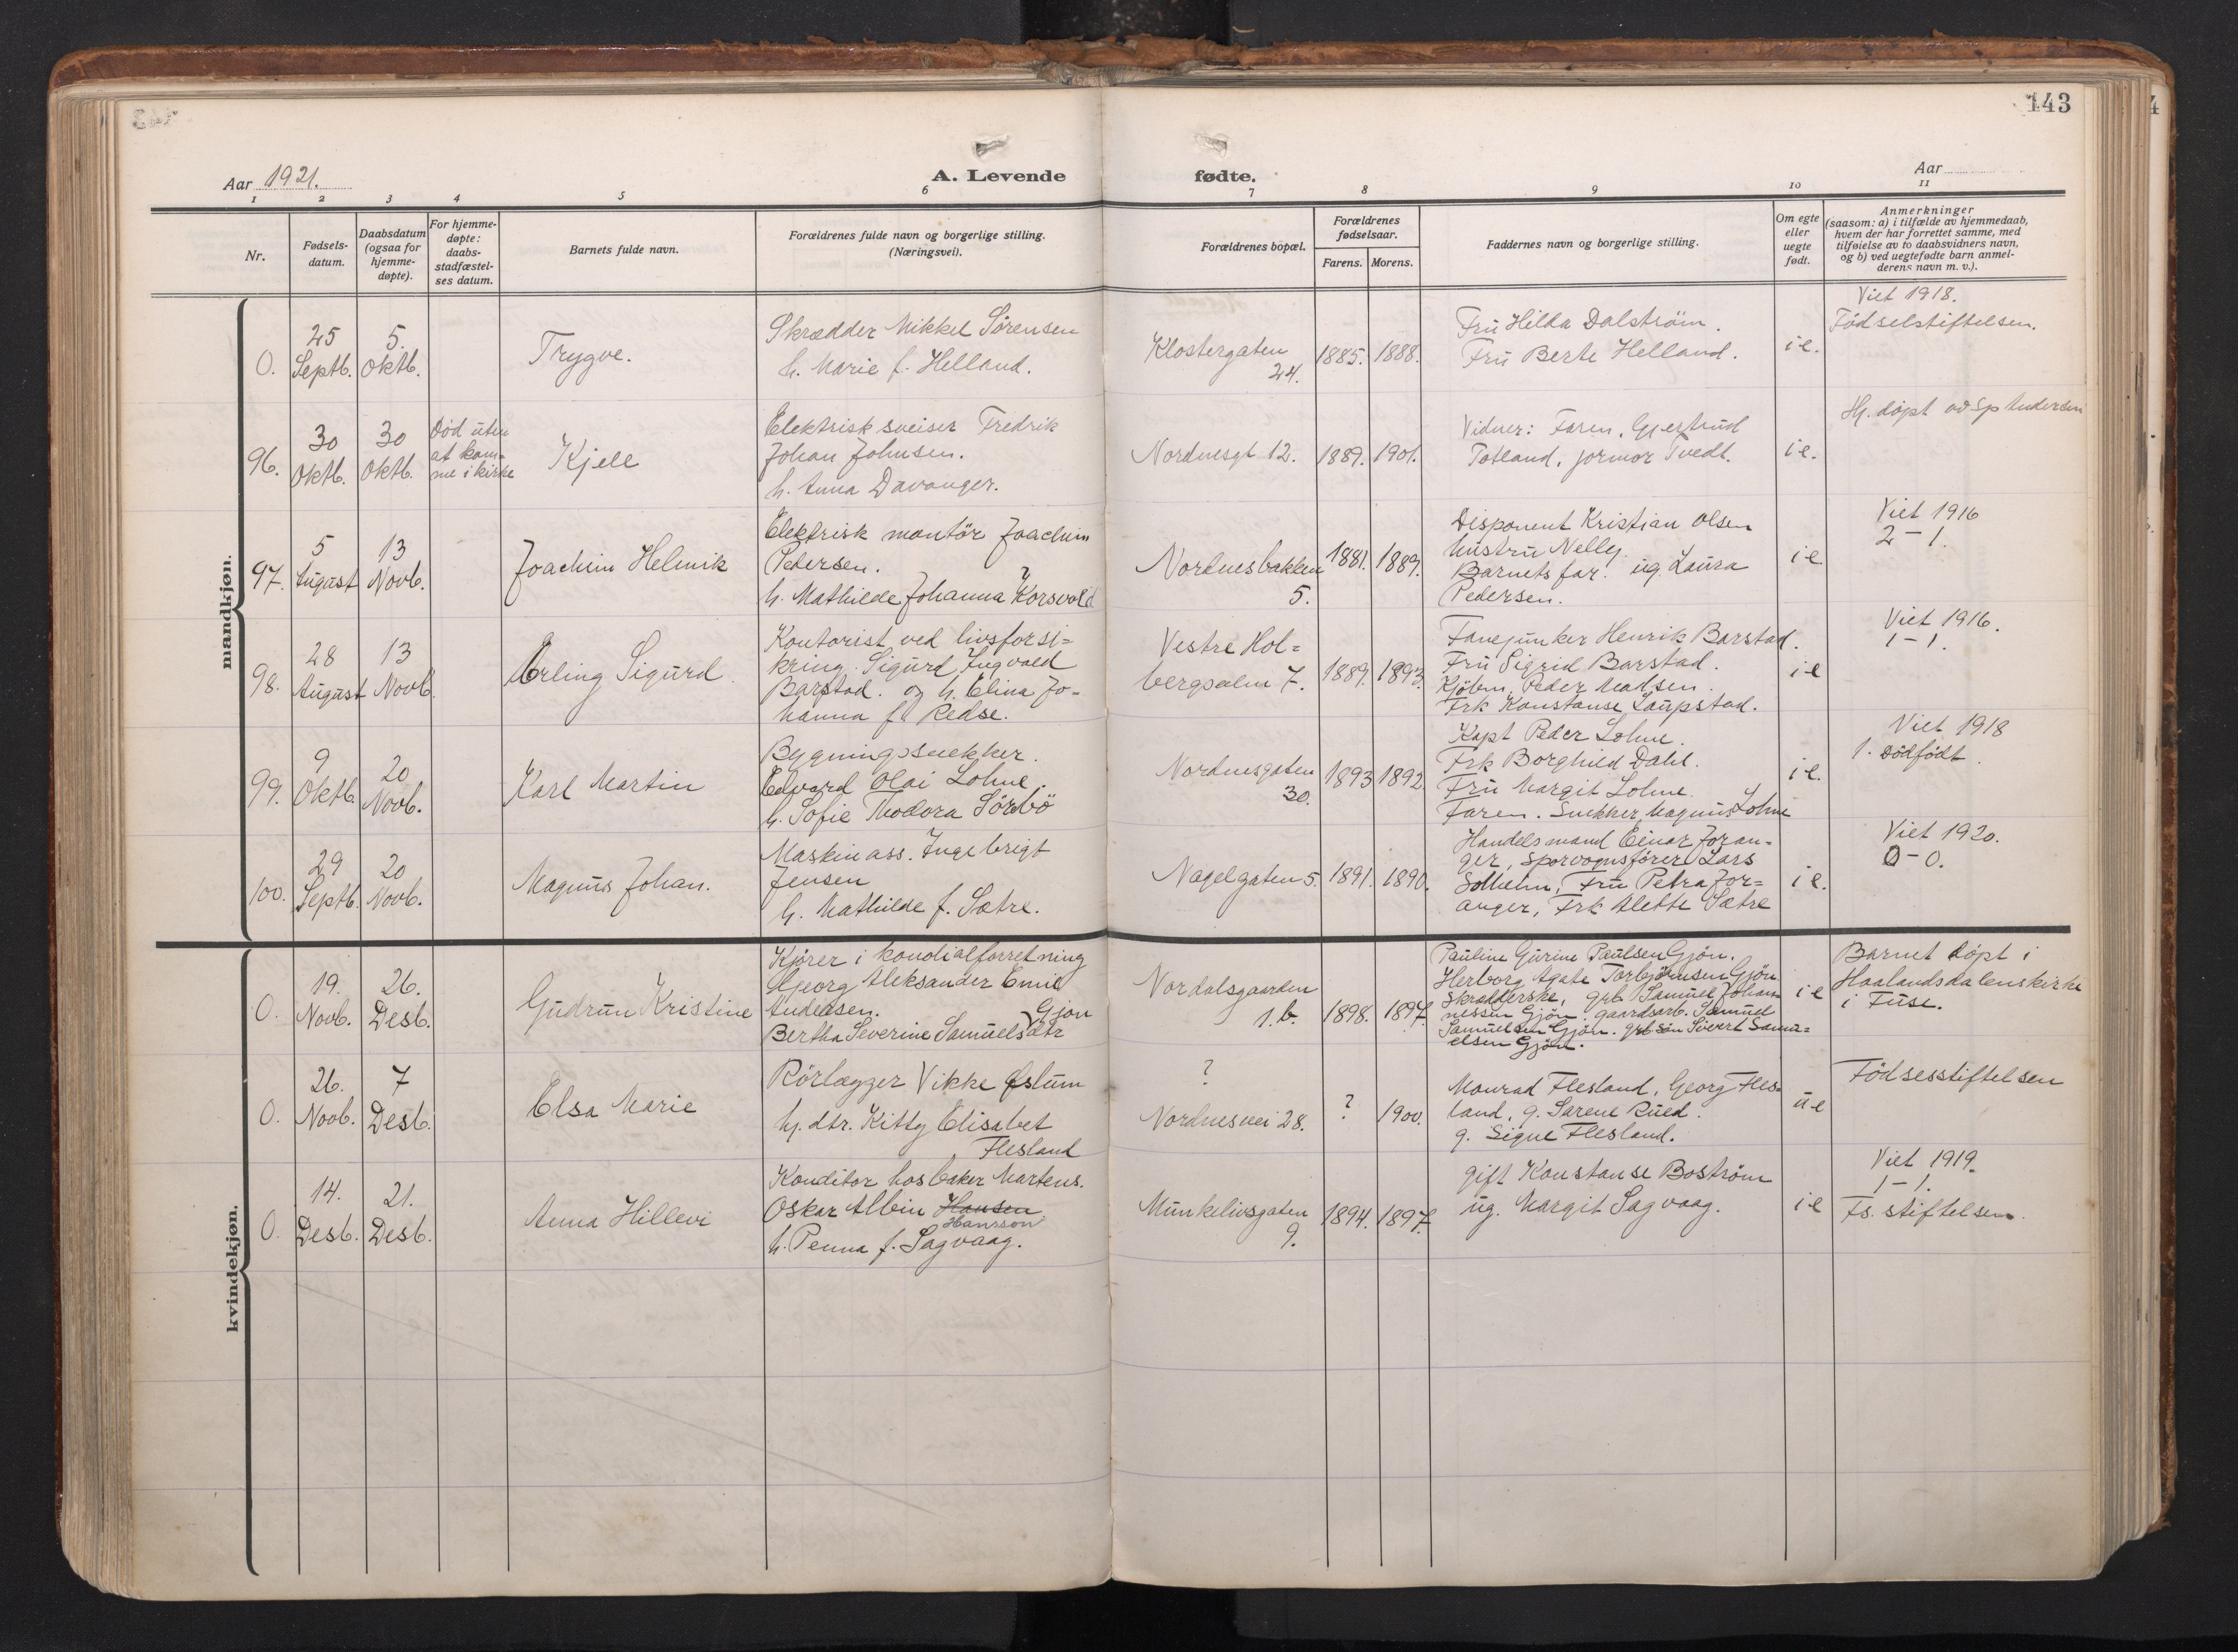 143
Aar 1921.
A. Levende fødte.
Aar
1 2 3 4 5 6 7 8 9 10 11
Nr.
Fødsels-
datum.
Daabsdatum
(ogsaa for
hjemme-
døpte).
For hjemme-
døpte:
daabs-
stadfæstel-
ses datum.
Barnets fulde navn.
Forældrenes fulde navn og borgerlige stilling.
(Næringsvei).
Forældrenes bopæl.
Forældrenes
fødselsaar.
Farens. Morens.
Faddernes navn og borgerlige stilling.
Om egte
eller
uegte
født.
Anmerkninger
(saasom: a) i tilfælde av hjemmedaab,
hvem der har forrettet samme, med
tilføielse av to daabsvidners navn,
og b) ved uegtefødte barn anmel-
derens navn m. v.).
mandkjøn.
0.
25
Septb.
5.
Oktb.
Trygve.
Skrædder Mikkel Sörensen
h. Marie f. Helland.
Klostergaten
24.
1885. 1888.
Fru Hilda Dalström.
Fru Berte Helland.
i e.
Viet 1918.
Födselstiftelsen.
96.
30
Oktb.
30
Oktb.
Död uten
at kom-
me i kirke
Kjell
Elektrisk sveiser Fredrik
Johan Johnsen.
h. Anna Davanger.
Nordnesgt 12.
1889. 1901.
Vidner: Faren, Gjertrud
Totland, jormor Tvedt.
i e.
Hj. döpt av Sp Andersen
97.
5
August
13
Novb.
Joachim Helmik
Elektrisk montör Joachim
Pedersen.
h. Mathilde Johanna Korsvold
Nordnesbakken
5.
1881. 1889.
Disponent Kristian Olsen
hustru Nelly.
Barnets far. ug. Laura
Pedersen.
i e
Viet 1916
2 - 1.
98.
28
August
13
Novb.
Erling Sigurd.
Kontorist ved livsforsi=
kring. Sigurd Ingvald
Barstad. og h. Elina Jo-
hanna f. Redse.
Vestre Hol=
bergsalm 7.
1889. 1893.
Fanejunker Henrik Barstad.
Fru Sigrid Barstad.
Kjöbm. Peder Madsen.
Frk Konstanse Laupstad.
i e
Viet 1916.
1 - 1.
99.
9
Oktb.
20
Novb.
Karl Martin
Bygningssnekker.
Edvard Olai Lohne.
h. Sofie Theodora Sörbö
Nordnesgaten
30.
1893 1892.
Kapt Peder Lohne.
Frk Borghild Dahl.
Fru Margit Lohne.
Faren. Snekker Magnus Lohne
i e.
Viet 1918
1. Dödfödt.
100.
29
Septb.
20
Novb.
Magnus Johan.
Maskinass. Ingebrigt
Jensen
h. Mathilde f. Sætre.
Nagelgaten 5.
1891. 1890.
Handelsmand Einar Joran-
ger, Sporvognsförer Lars
Solheim, Fru Petra Jor=
anger, Frk Alette Sætre
i e.
Viet 1920.
0 - 0.
kvindekjøn.
0.
19.
Novb.
26.
Desb.
Gudrun Kristine
Kjörer i kondialforretning
Georg Aleksander Emil
Andersen. Gjön
Bertha Severine Samuelsdtr
Nordalsgaarden
1.b.
1898. 1897.
Pauline Gurine Paulsen Gjön.
Herborg Agate Torbjörnsen Gjön
Skrædderske, grb Samuel Johan-
nessen Gjön. gaardsarb. Samuel
Samuelsen Gjön. grb sön Sivert Samu=
elsen Gjön.
i e
Barnet döpt i
Haalandsdalenskirke
i Fuse.
0.
26.
Novb.
7
Desb.
Elsa Marie
Rörlægger Vikke Östum
hj. dtr. Kitty Elisabet
Flesland
?
Nordnesvei 28.
? 1900.
Monrad Flesland, Georg Fles-
land, g. Sarene Rued.
g. Signe Flesland.
u e
Födsesstiftelsen
0.
14.
Desb.
21.
Desb.
Anna Hillevi
Konditor hos baker Martens.
Oskar Albin Hansen
Hansson
h. Penna f. Sagvaag.
Munkelivsgaten
9.
1894. 1897.
gift Konstanse Boström
ug. Margit Sagvaag.
i e
Viet 1919.
1 - 1.
Fs. stiftelsen.